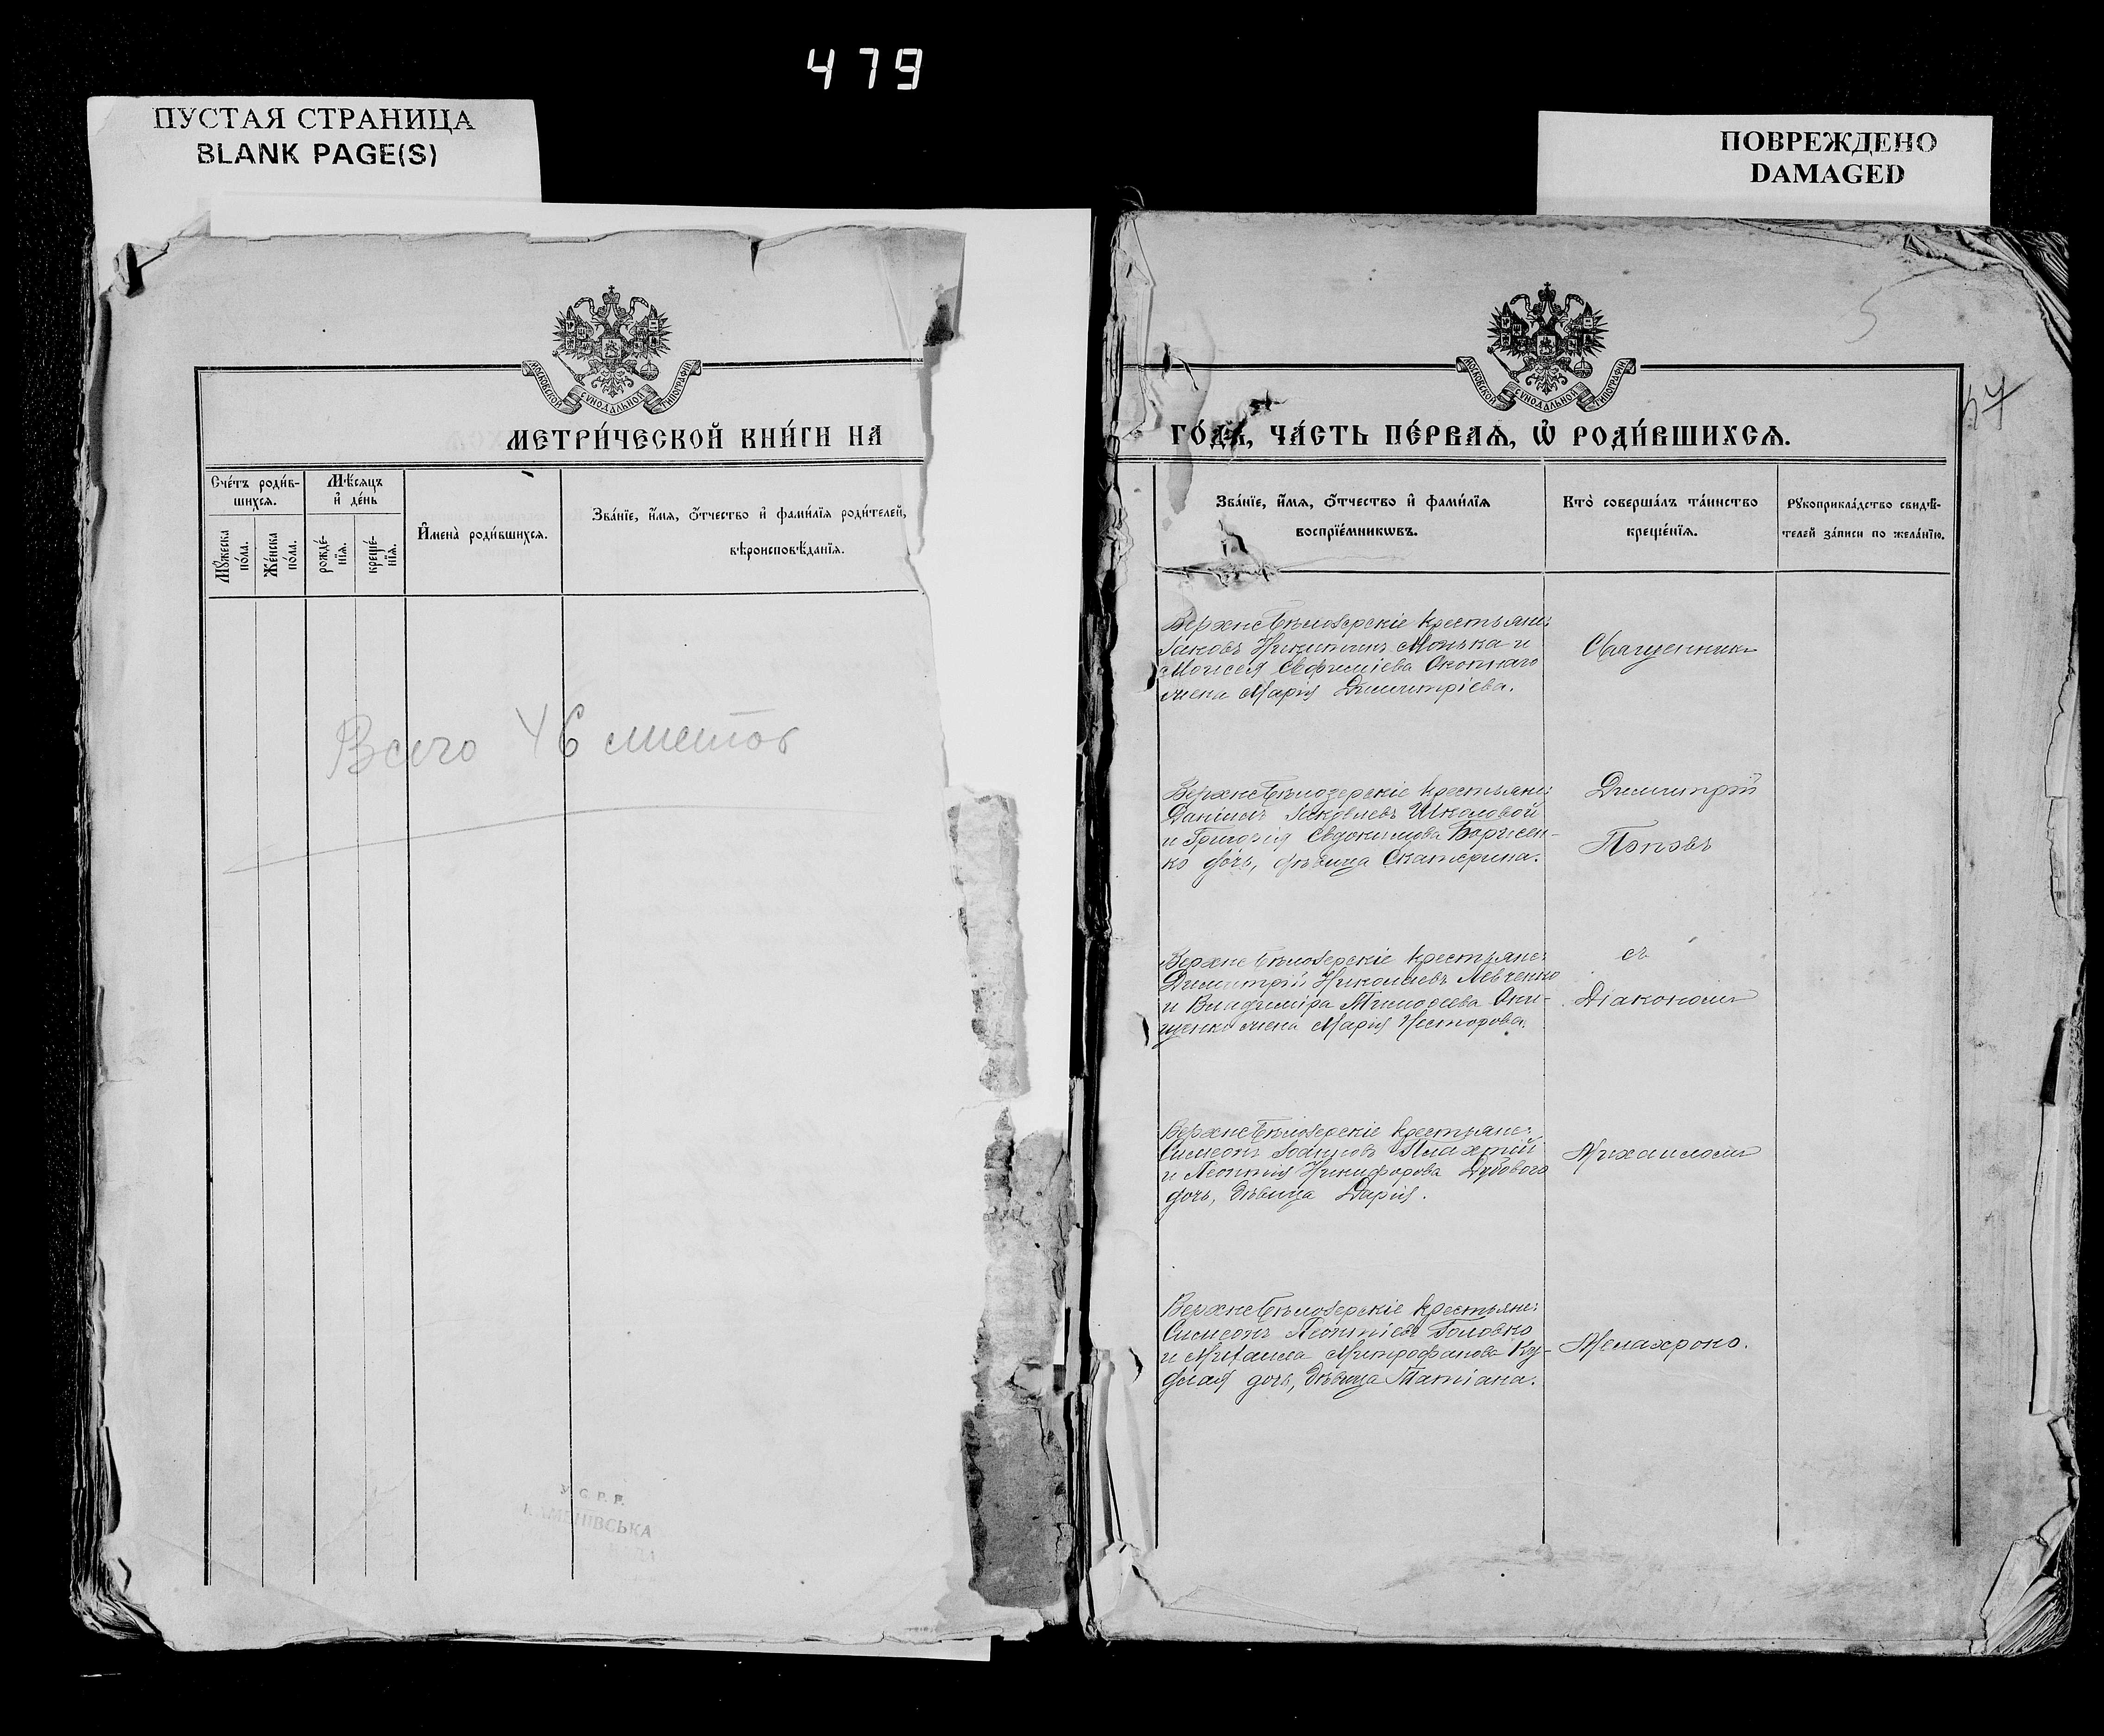 479
ПУСТАЯ СТРАНИЦА
BLANK PAGE(S)
ПОВРЕЖДЕНО
DAMAGED
МОСКОВСКОЙ СѴНОДАЛЬНОЙ ТИПОГРАФІИ
МЕТРИ́ЧЕСКОЙ КНИ́ГИ НА
Сче́тъ роди́в-
шихсѧ.
Мѣ́сѧцъ
и҆ де́нь
Мꙋ́жеска
по́ла.
Же́нска
по́ла.
рожде́-
нїѧ.
креще́-
нїѧ.
И҆мена̀ роди́вшихсѧ.
Зва́нїе, и҆́мѧ, ѻ҆́тчество и҆ фами́лїѧ роди́телей,
вѣроисповѣ́данїѧ.
Всего 46 листов
У. С. Р. Р.
КАМЕНІВСЬКА
5
МОСКОВСКОЙ СѴНОДАЛЬНОЙ ТИПОГРАФІИ
57
ГО́ДЪ, ЧА́СТЬ ПЕ́РВАѦ, Ѽ РОДИ́ВШИХСѦ.
Зва́нїе, и҆́мѧ, ѻ҆́тчество и҆ фами́лїѧ
воспрїе́мникѡвъ.
Кто̀ соверша́лъ та́инство
креще́нїѧ.
Рꙋкоприкла́дство свидѣ́-
телей за́писи по жела́нїю.
ВерхнеБѣлозерскіе крестьяне:
Іаковъ Никитинъ Монька и
Моисея Евфиміева Скопнаго
жена Марія Димитріева.
Священникъ
ВерхнеБѣлозерскіе крестьяне:
Даніилъ Іаковлевъ Шкаловой
и Григорія Евдокимова Борисен-
ко дочь, дѣвица Екатерина.
Димитрій
Поповъ
ВерхнеБѣлозерскіе крестьяне:
Димитрій Николаевъ Левченко
и Владиміра Тимоѳеева Они-
щенко жена Марія Несторова.
съ
Діакономъ
ВерхнеБѣлозерскіе крестьяне:
Симеонъ Іоанновъ Плахтій
и Леонтія Никифорова Дубового
дочь, дѣвица Дарія.
Михаиломъ
ВерхнеБѣлозерскіе крестьяне:
Симеонъ Леонтіевъ Головко
и Михаила Митрофанова Ку-
длая дочь, дѣвица Татіана.